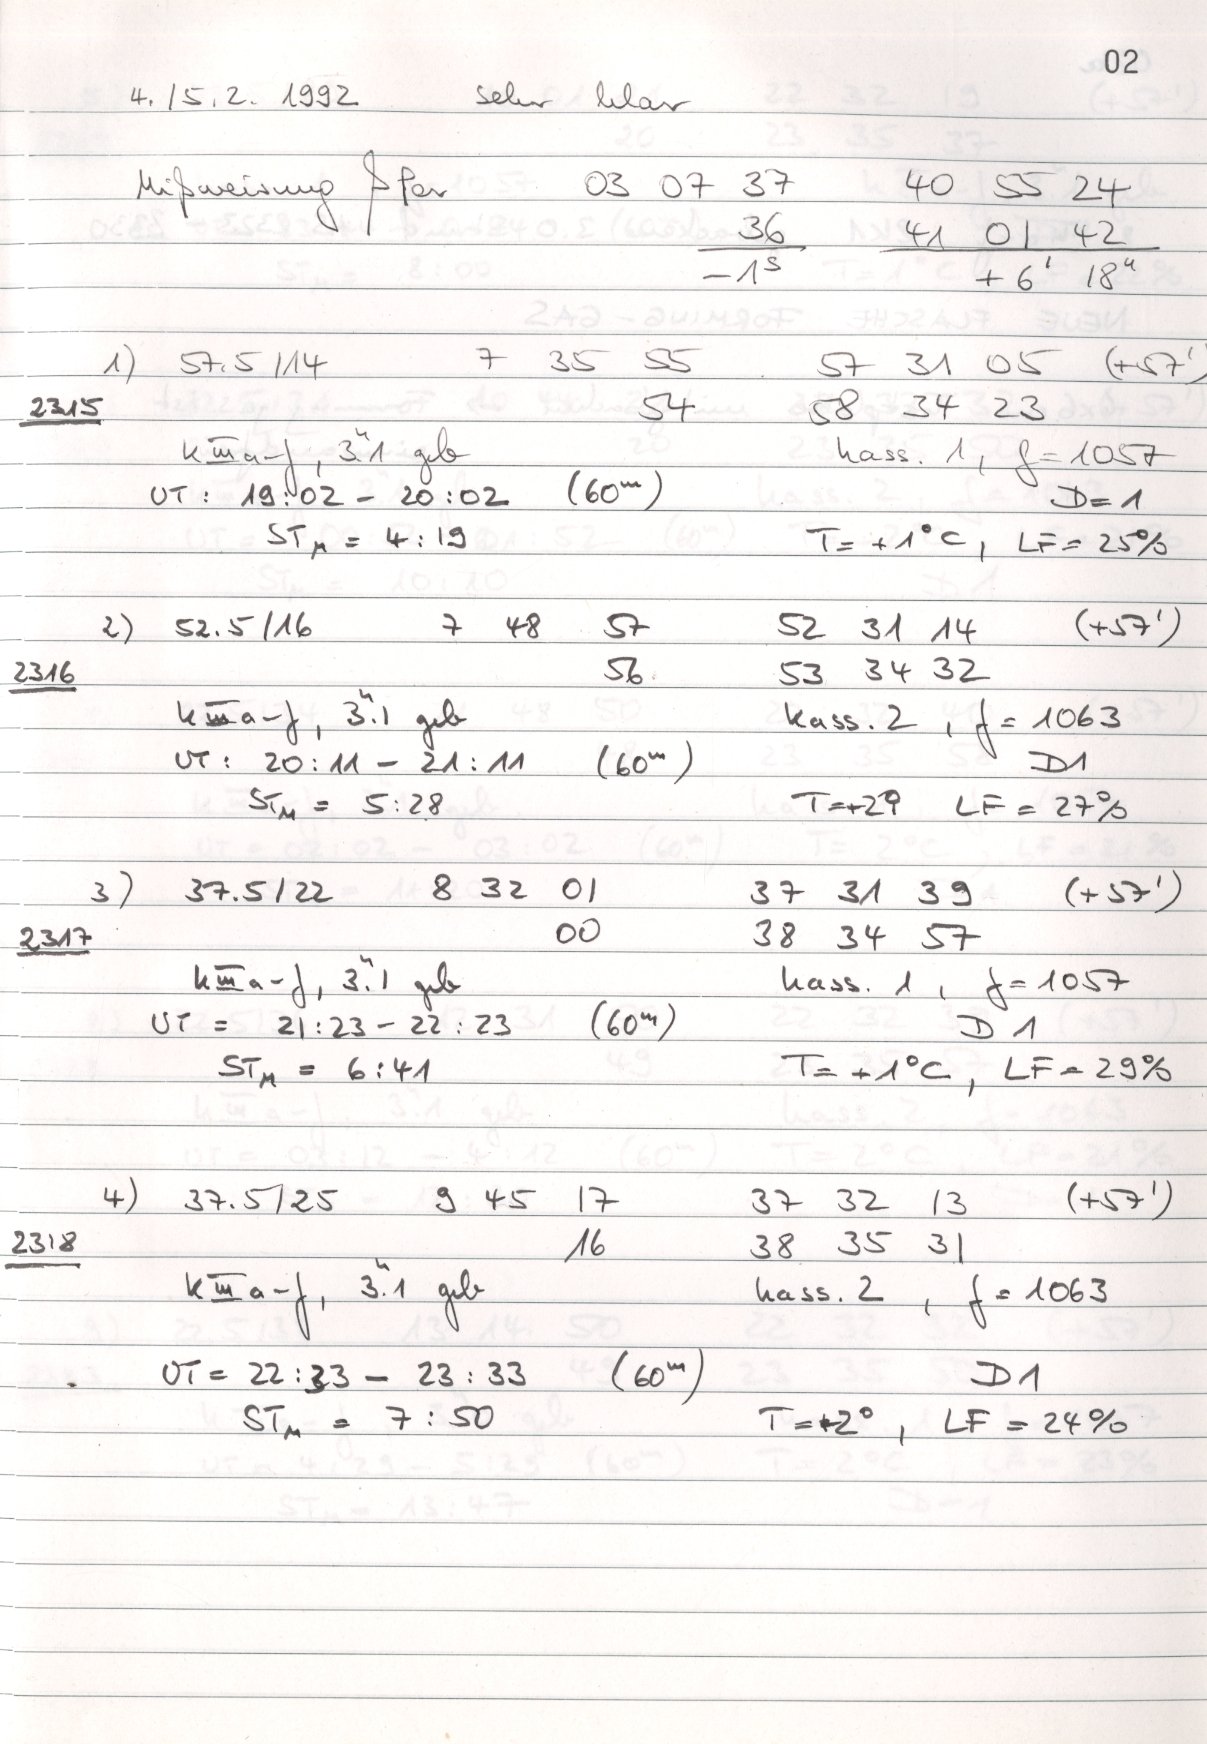 02
4./5.2. 1992 sehr klar
Mißweisung β Per 03 07 37 40 55 24
36 41 01 42
-1ˢ +6' 18"
1) 57.5/14 7 35 55 57 31 05 (+57')
2315 54 58 34 23
KIIIa-J, 3."1 geb Kass. 1, f=1057
UT: 19:02 - 20:02 (60ᵐ) D=1
STM = 4:19 T=+1°C, LF=25%
2) 52.5/16 7 48 57 52 31 14 (+57')
2316 56 53 34 32
KIIIa-J, 3."1 geb Kass. 2, f=1063
UT: 20:11 - 21:11 (60ᵐ) D1
STM = 5:28 T=+2° LF = 27%
3) 37.5/22 8 32 01 37 31 39 (+57')
2317 00 38 34 57
KIIIa-J, 3."1 geb Kass. 1, f=1057
UT = 21:23 - 22:23 (60ᵐ) D1
STM = 6:41 T=+1°C, LF=29%
4) 37.5/25 9 45 17 37 32 13 (+57')
2318 16 38 35 31
KIIIa-J, 3."1 geb Kass. 2, f=1063
UT = 22:33 - 23:33 (60ᵐ) D1
STM = 7:50 T=+2°, LF = 24%